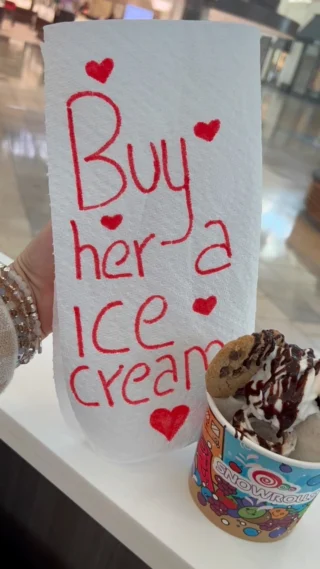 Buy
her a
ice
cream
SNOWROLLS